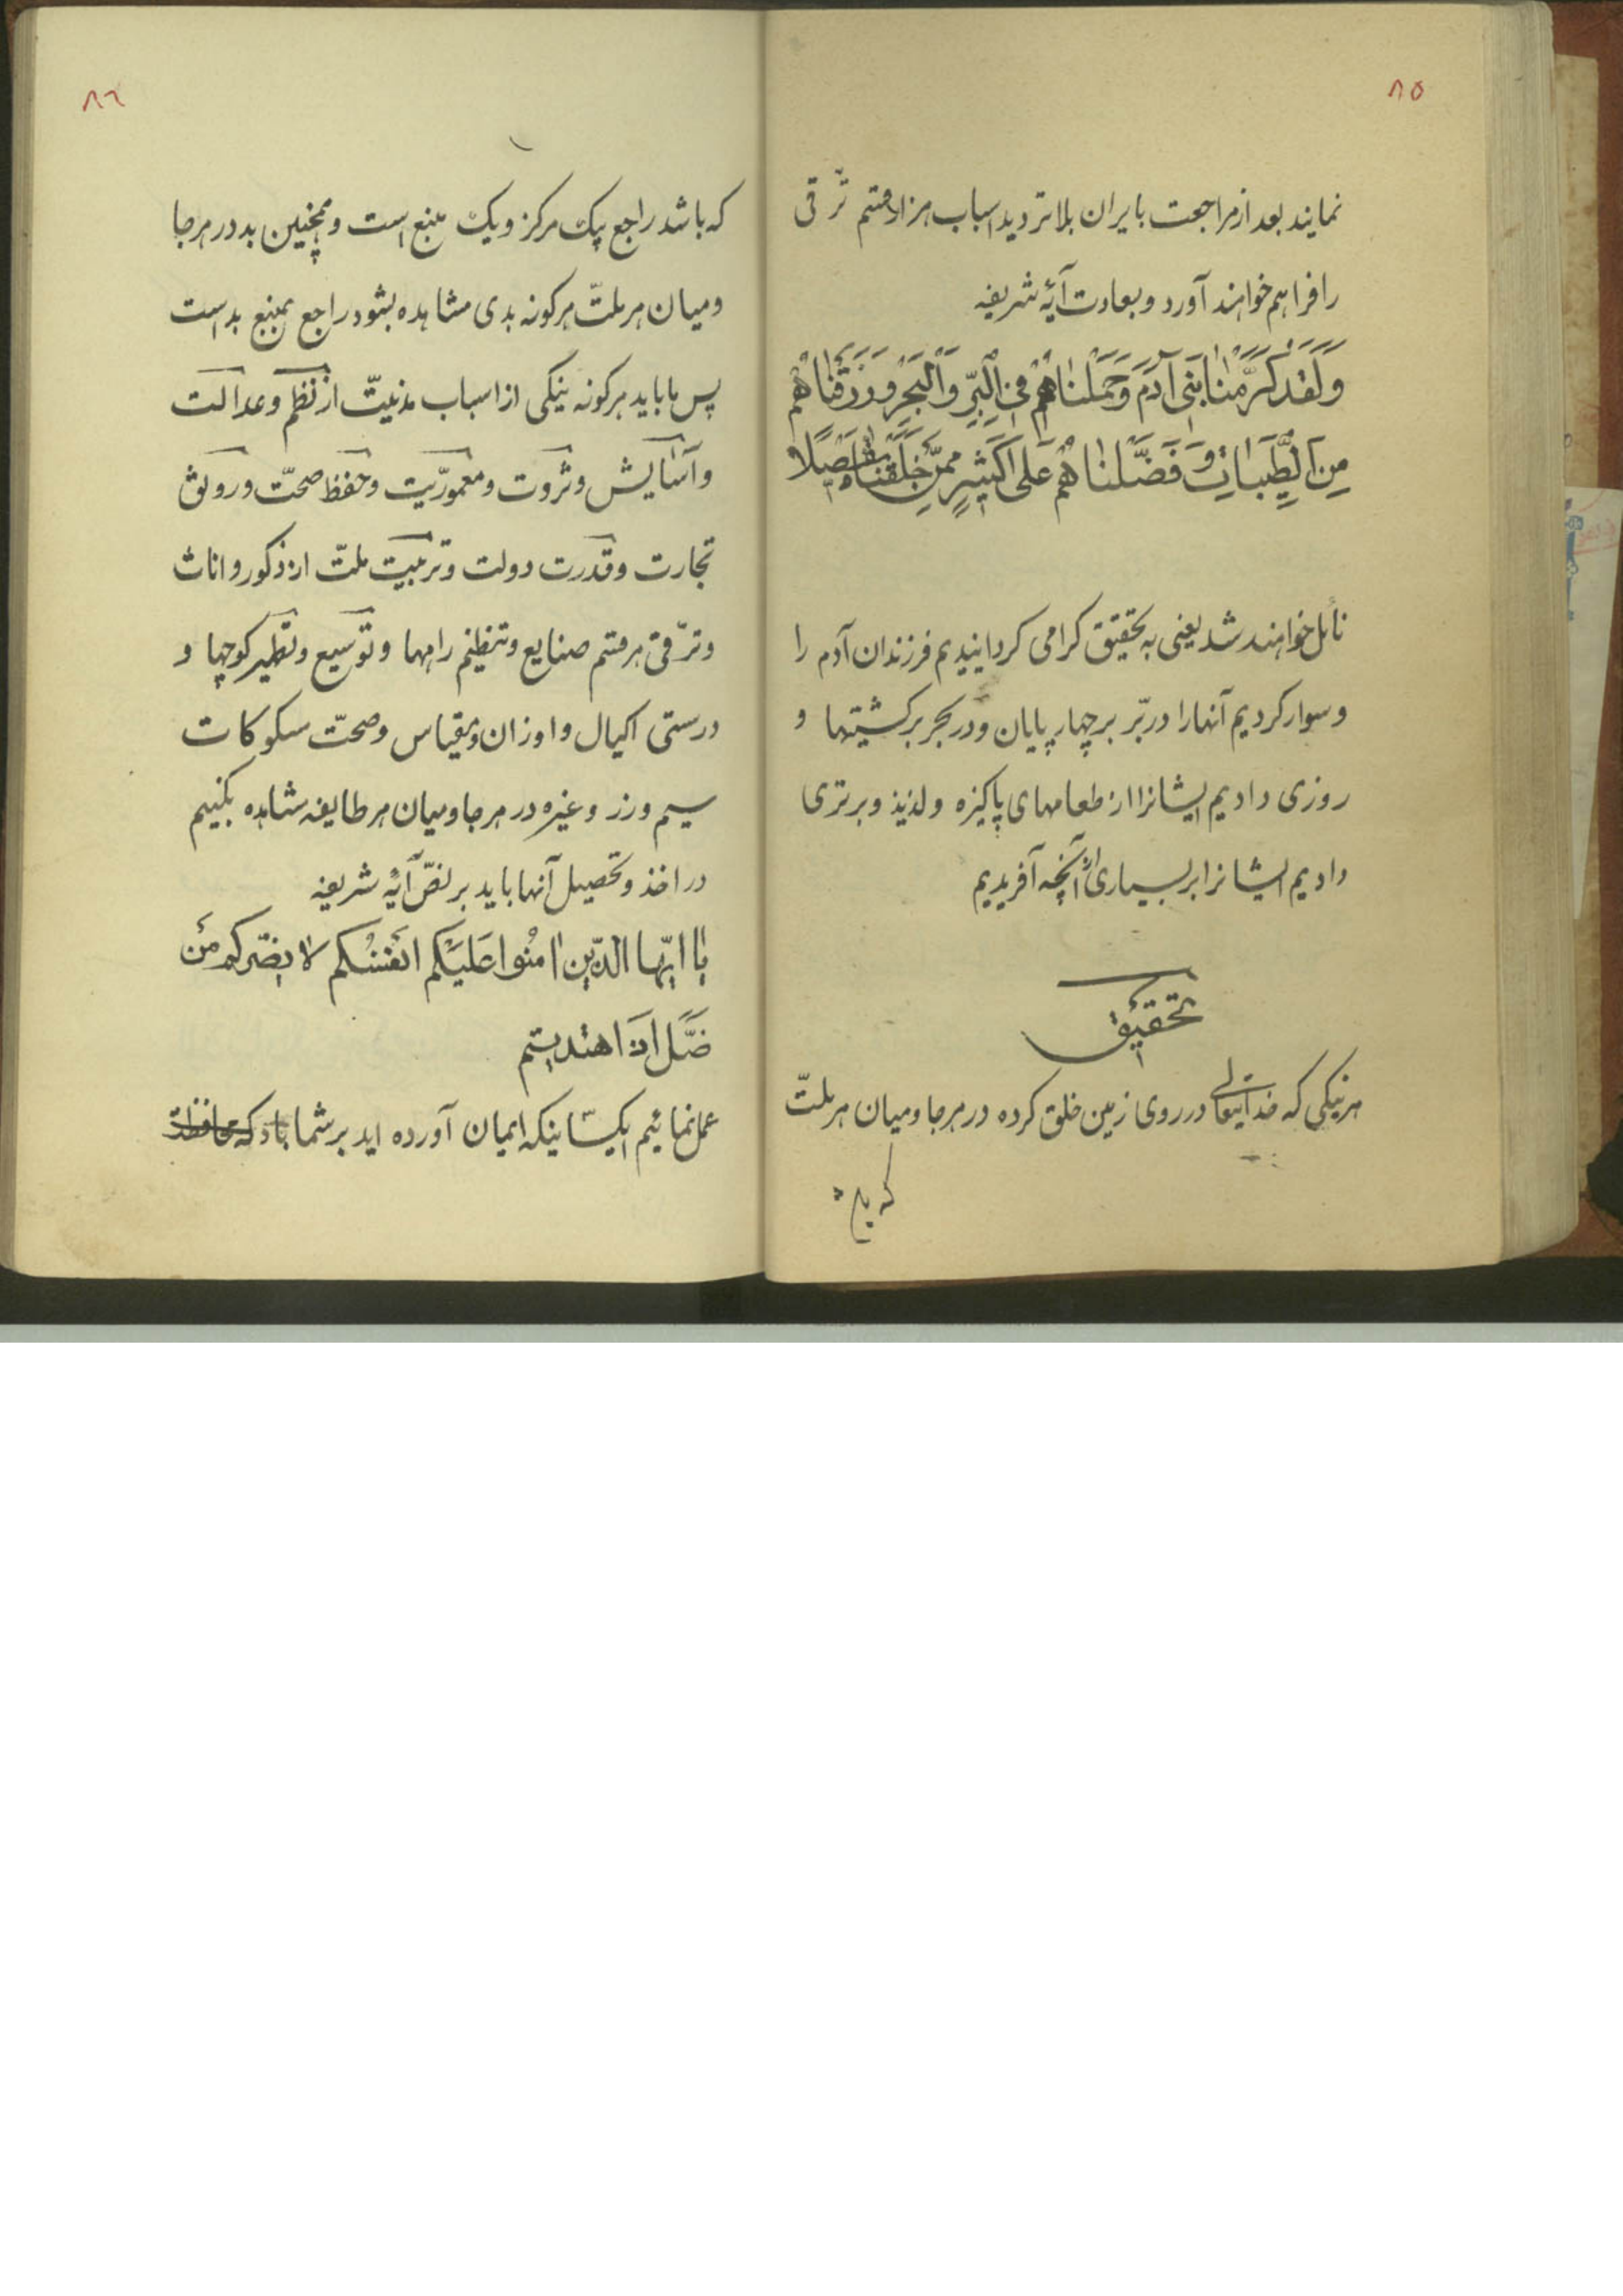 ۸۵
نمایند بعد از مراجعت بایران بلاتردید اسباب هزار قسم ترّقی
را فراهم خواهند آورد و بعادت آیهٔ شریفه
وَلَقَدْ كَرَّمْنٰا بَنی آدَمَ وَحَمَلْنٰاهُمْ فِی الْبَرِّ وَالْبَحْرِ وَرَزَقْنٰاهُمْ
مِنَ الطَّیِّبٰاتِ وَ فَضَّلْنٰاهُمْ عَلیٰ كَثیرٍ مِمَّنْ خَلَقْنٰا تَفْضیلًا
نائل خواهند شد یعنی به تحقیق کرامی کردانیدیم فرزندان آدم را
و سوار کردیم آنها را در بّر بر چهار پایان و در بحر بر کشتیها و
روزی دادیم ایشانرا از طعامهای پاکیزه و لذیذ و برتری
دادیم ایشانرا بر بسیاری از آنچه آفریدیم
تحقیق
هر نیکی که خدایتعالی در روی زمین خلق کرده در هر جا و میان هر ملتّ
که باشد
۸٦
که باشد راجع بیک مرکز و یک منبع است و همچنین بد در هر جا
و میان هر ملتّ هر کونه بدی مشاهده بشود راجع بمنبع بد است
پس ما باید هر کونه نیکی از اسباب مدنیتّ از نظم و عدالت
و آسایش و ثروت و معموریّت و حفظ صحتّ و رونق
تجارت و قدرت دولت و تربیت ملتّ از ذکور و اناث
و ترّقی هر قسم صنایع و تنظیم راهها و توسیع و تطهیر کوچها و
درستی اکیال و اوزان و مقیاس و صحتّ مسکوکات
سیم و زر و غیره در هر جا و میان هر طایفه مشاهده بکنیم
در اخذ و تحصیل آنها باید بر نصّ آیهٔ شریفه
یا ایّها الّذین اٰمنُوا عَلَیْکُم اَنْفُسَکُم لا یضّرکُم مَن
ضَّلَ اذَا اهتدیتم
عمل نمائیم ایکسانیکه ایمان آورده اید بر شما باد که محافظت